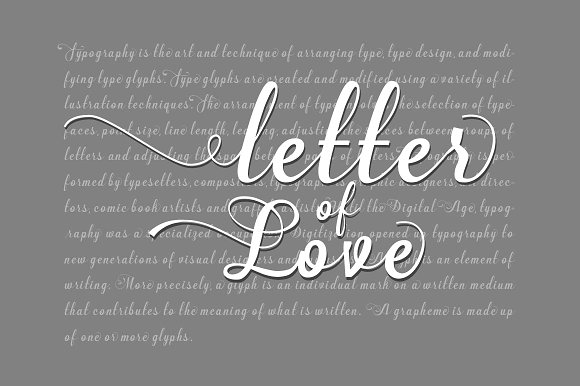 Typography is the art and technique of arranging type, type design, and modi-
fying type glyphs. Type glyphs are created and modified using a variety of il-
lustration techniques. The arrangement of type the selection of type-
faces, point size, line length, adjusting the spaces between groups of
letters and adjusting the is per-
formed by typesetters, direc-
tors, comic book artists and the Digital Age, typog-
raphy was a specialized Digitization opened up typography to
new generations of visual designers and is an element of
writing. More precisely, a glyph is an individual mark on a written medium
that contributes to the meaning of what is written. A grapheme is made up
of one or more glyphs.
letter
of
Love